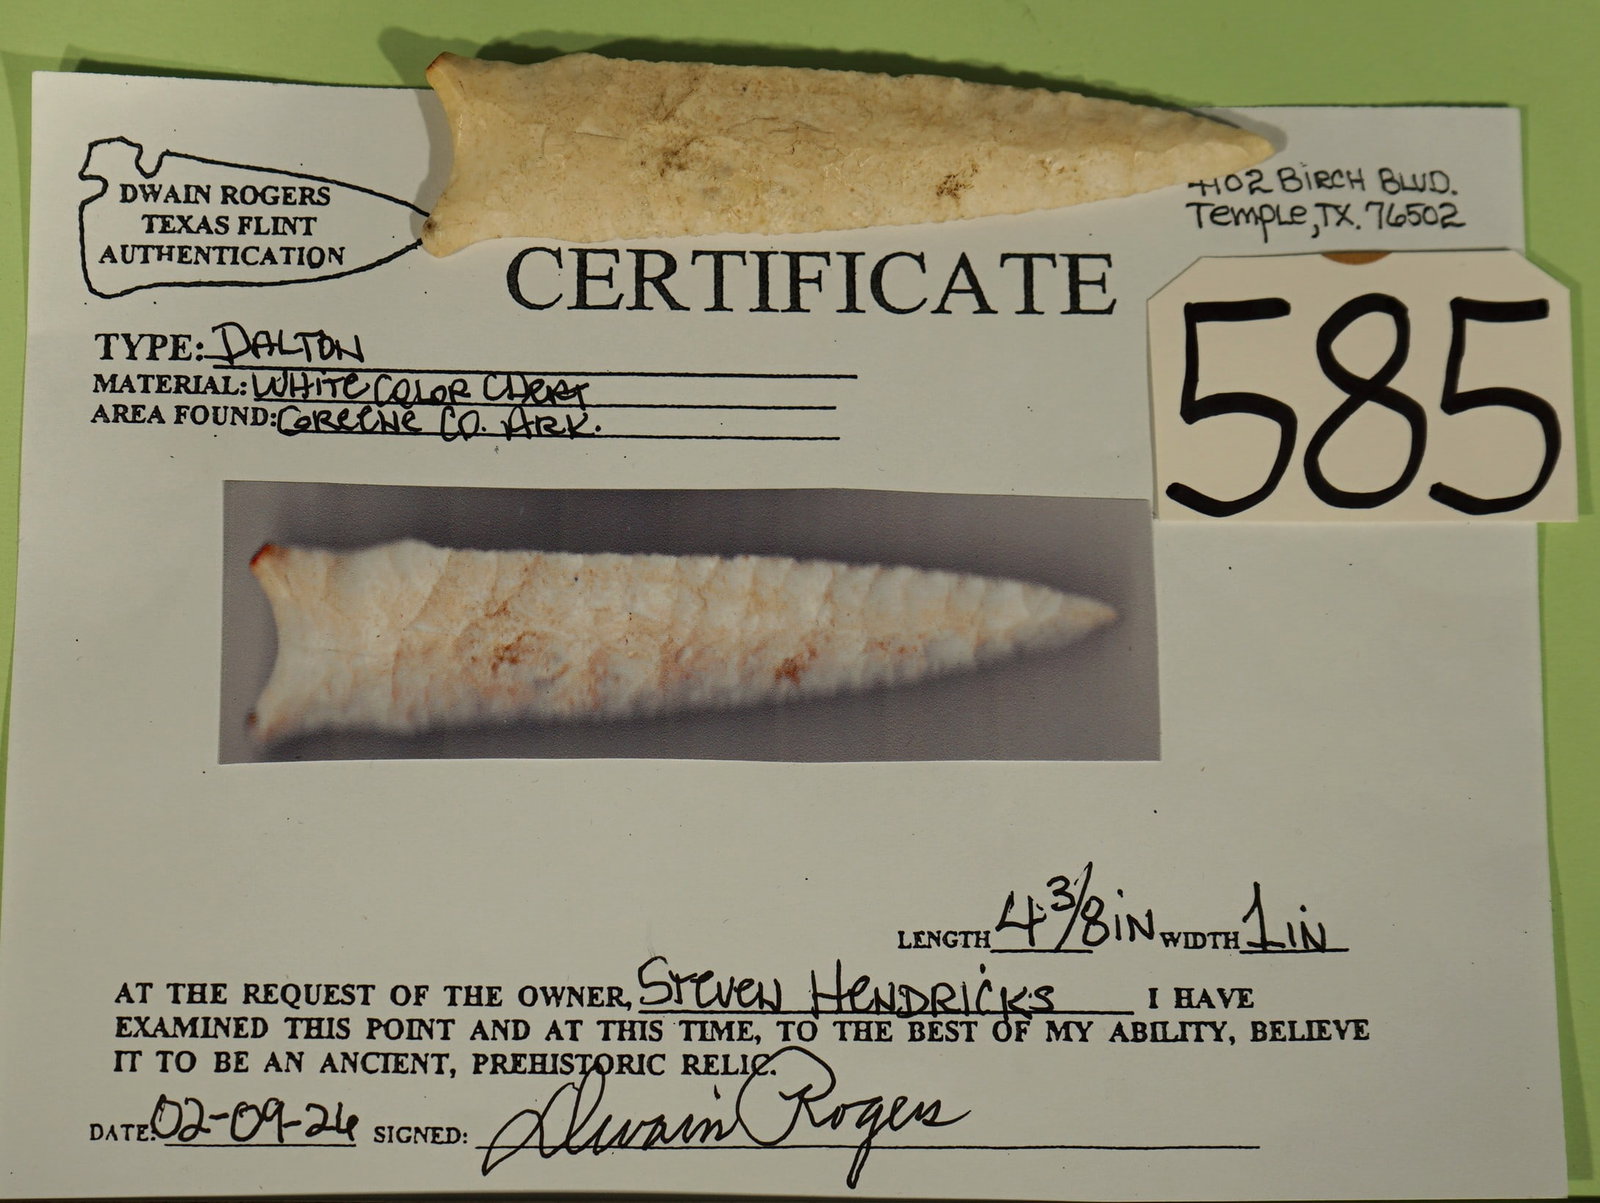 DWAIN ROGERS
TEXAS FLINT
AUTHENTICATION
4102 BIRCH BLVD.
TEMPLE, TX. 76502
CERTIFICATE
585
TYPE: DALTON
MATERIAL: WHITE COLOR CHERT
AREA FOUND: GREENE CO. ARK.
LENGTH 4 3/8 IN WIDTH 1 IN
AT THE REQUEST OF THE OWNER, STEVEN HENDRICKS I HAVE
EXAMINED THIS POINT AND AT THIS TIME, TO THE BEST OF MY ABILITY, BELIEVE
IT TO BE AN ANCIENT, PREHISTORIC RELIC.
DATE: 02-09-26 SIGNED: Dwain Rogers